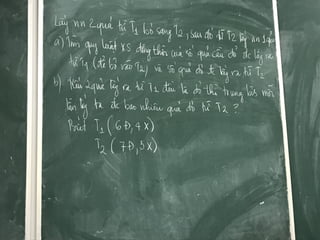 Lấy nn 2 quả từ T1 bỏ sang T2, sau đó từ T2 lấy nn 1 quả
a) Tìm quy luật XS đồng thời của số quả cầu đỏ đc lấy ra
từ T1 (để bỏ vào T2) và số quả đỏ đc lấy ra từ T2
b) Nếu 2 quả lấy ra từ T1 đều là đỏ thì trung bình mỗi
lần lấy ta đc bao nhiêu quả đỏ từ T2 ?
Biết T1 (6Đ, 4X)
T2 (7Đ, 3X)